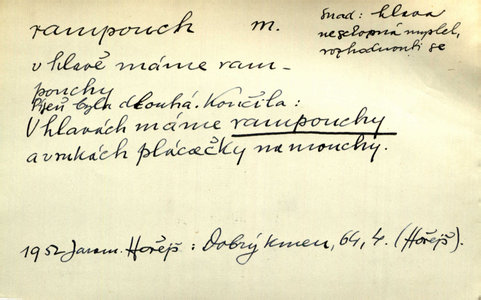 rampouch m.
Snad: hlava
neschopná myslet,
rozhodnouti se
v hlavě máme ram-
pouchy
Píseň byla dlouhá. Končila:
V hlavách máme rampouchy
a v rukách plácačky na mouchy.
1952 Jarom. Hořejš: Dobrý kmen, 64, 4. (Hořejš).